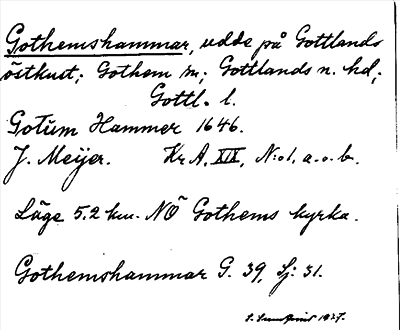 Gothemshammar, udde på Gottlands
östkust; Gothem sn; Gottlands n. hd;
Gottl. l.
Gotum Hammer 1646.
J. Meijer. Kr A, XIX, N:o 1, a. o. b.
Läge 5,2 km. NO Gothems kyrka.
Gothemshammar G. 39, Sj: 31.
1927.